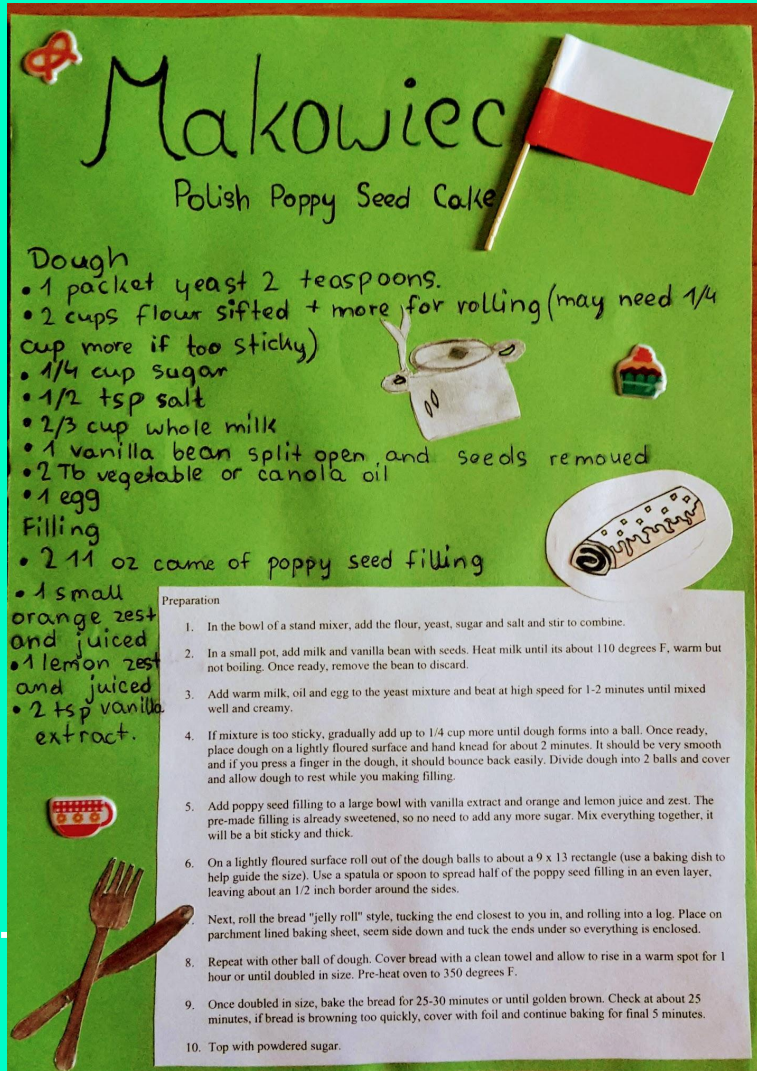 Makowiec
Polish Poppy Seed Cake
Dough
• 1 packet yeast 2 teaspoons.
• 2 cups flour sifted + more for rolling (may need 1/4
cup more if too sticky)
• 1/4 cup sugar
• 1/2 tsp salt
• 2/3 cup whole milk
• 1 vanilla bean split open and seeds removed
• 2 Tb vegetable or canola oil
• 1 egg
Filling
• 2 11 oz came of poppy seed filling
• 1 small
orange zest
and juiced
• 1 lemon zest
and juiced
• 2 tsp vanilla
extract.
Preparation
1. In the bowl of a stand mixer, add the flour, yeast, sugar and salt and stir to combine.
2. In a small pot, add milk and vanilla bean with seeds. Heat milk until its about 110 degrees F, warm but
not boiling. Once ready, remove the bean to discard.
3. Add warm milk, oil and egg to the yeast mixture and beat at high speed for 1-2 minutes until mixed
well and creamy.
4. If mixture is too sticky, gradually add up to 1/4 cup more until dough forms into a ball. Once ready,
place dough on a lightly floured surface and hand knead for about 2 minutes. It should be very smooth
and if you press a finger in the dough, it should bounce back easily. Divide dough into 2 balls and cover
and allow dough to rest while you making filling.
5. Add poppy seed filling to a large bowl with vanilla extract and orange and lemon juice and zest. The
pre-made filling is already sweetened, so no need to add any more sugar. Mix everything together, it
will be a bit sticky and thick.
6. On a lightly floured surface roll out of the dough balls to about a 9 x 13 rectangle (use a baking dish to
help guide the size). Use a spatula or spoon to spread half of the poppy seed filling in an even layer,
leaving about an 1/2 inch border around the sides.
Next, roll the bread "jelly roll" style, tucking the end closest to you in, and rolling into a log. Place on
parchment lined baking sheet, seem side down and tuck the ends under so everything is enclosed.
8. Repeat with other ball of dough. Cover bread with a clean towel and allow to rise in a warm spot for 1
hour or until doubled in size. Pre-heat oven to 350 degrees F.
9. Once doubled in size, bake the bread for 25-30 minutes or until golden brown. Check at about 25
minutes, if bread is browning too quickly, cover with foil and continue baking for final 5 minutes.
10. Top with powdered sugar.